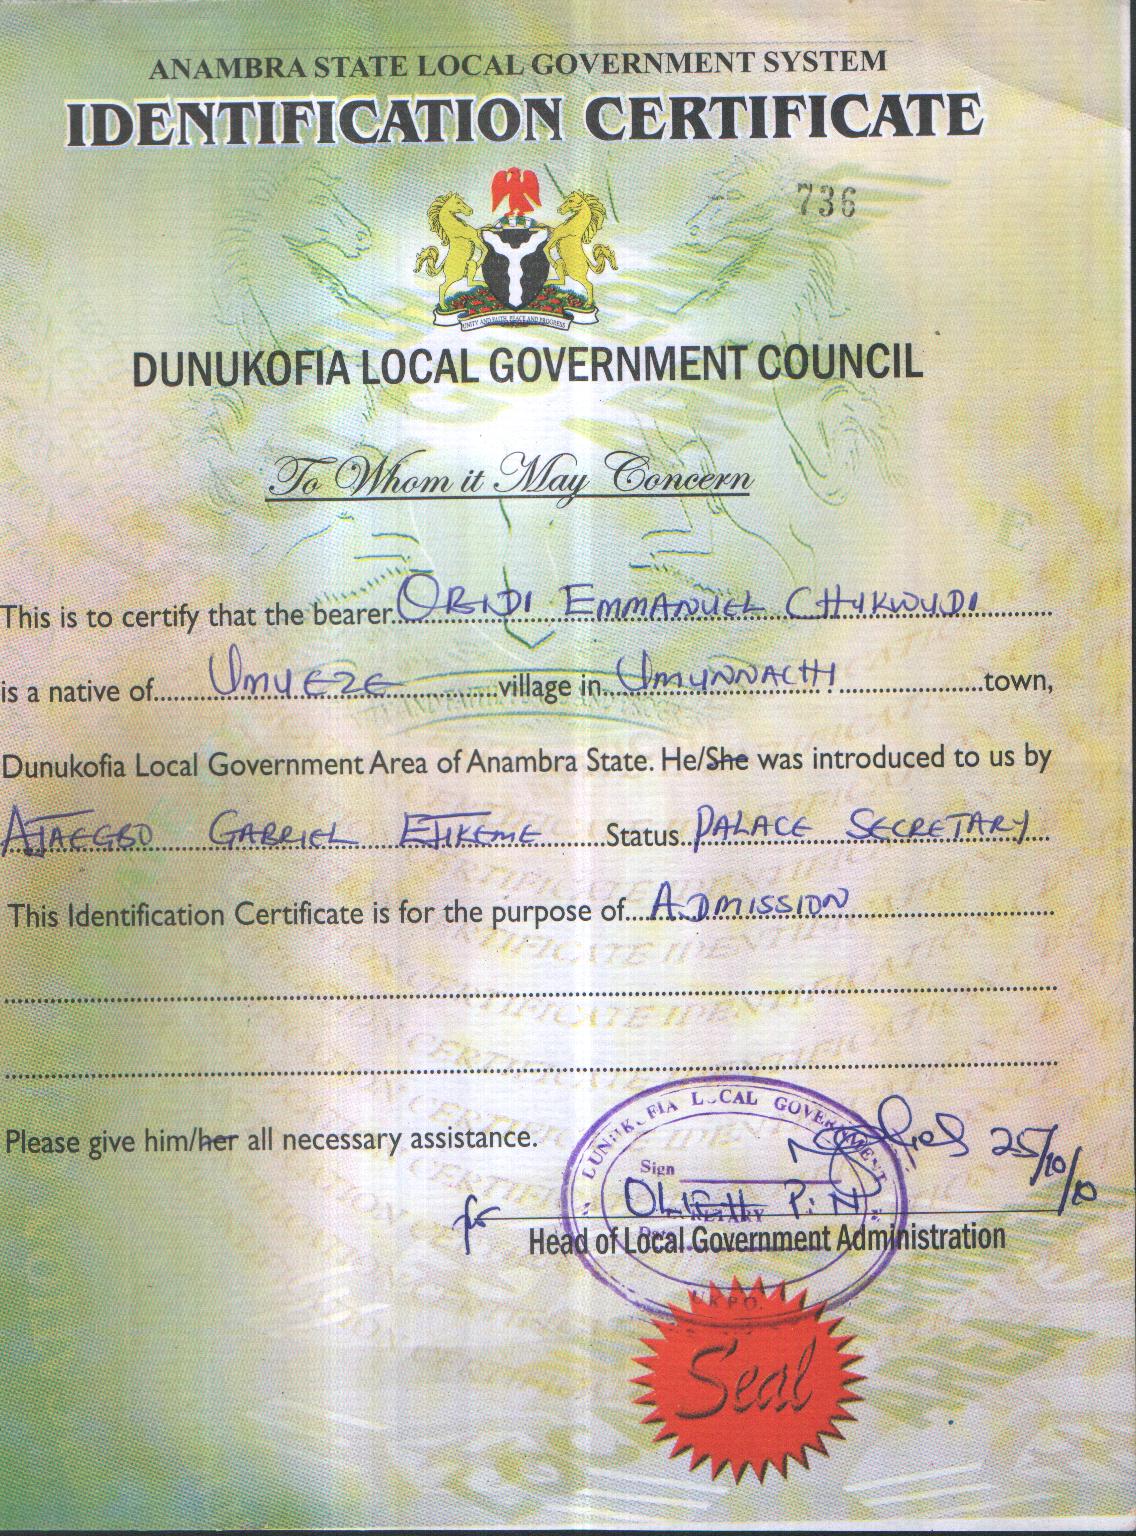 ANAMBRA STATE LOCAL GOVERNMENT SYSTEM
IDENTIFICATION CERTIFICATE
736
UNITY AND FAITH, PEACE AND PROGRESS
DUNUKOFIA LOCAL GOVERNMENT COUNCIL
To Whom it May Concern
This is to certify that the bearer OBIDI EMMANUEL CHUKWUDI
is a native of UMUEZE village in UMUNNACHI town,
Dunukofia Local Government Area of Anambra State. He/She was introduced to us by
AJAEGBO GABRIEL EJIKEME Status PALACE SECRETARY
This Identification Certificate is for the purpose of ADMISSION
Please give him/her all necessary assistance.
DUNUKOFIA LOCAL GOVERNMENT
25/10/10
Sign
for OLIGH P. N
Head of Local Government Administration
UKPO.
Seal